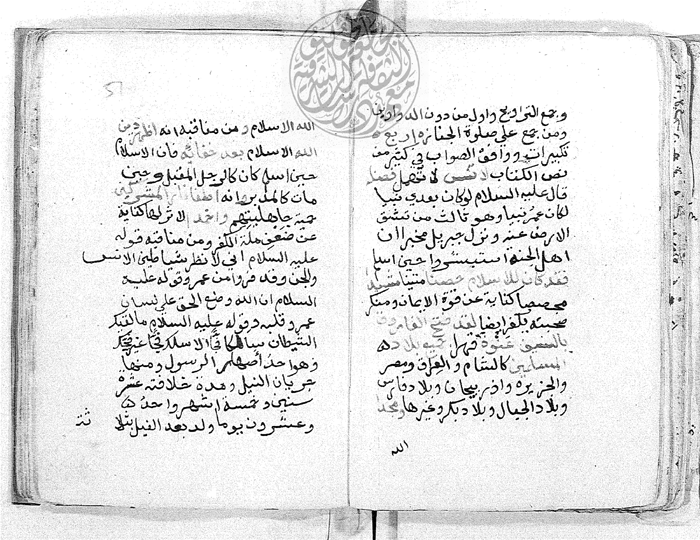 وجمع التراويح واول من دون الدواوين
ومن جمع علي صلوة الجنازه اربع
تكبيرات ووافق الصواب في كثير من
نص الكتاب لا تنس لا تهمل فضله
قال عليه السلام لو كان بعدي نبيا
لكان عمر نبيا وهو ثالث من تنشق
الارض عنه ونزل جبريل مخبرا ان
اهل الجنة استبشروا حين اسلم
فقد كان للاسلام حصنا متينا مشيد
مجصصا كناية عن قوة الايمان ومنكر
صحبته يكفر ايضا لقد فتح الفاروق
بالسيف عنوة قهرا بلاده
المسلمين كالشام والعراق ومصر
والجزيرة واذربيجان وبلاد فارس
وبلاد الجبال وبلاد بكر وغيرها
الله
الله الاسلام ومن مناقبه انه اظهر دين
الله الاسلام بعد خفائه فان الاسلام
حين اسلم كان كالرجل المقبل وحين
مات كالمدبر انه اطفا نار المشركين
حمية جاهليتهم واخمد الاثر لها كناية
عن ضعف ملة الكفر ومن مناقبه قوله
عليه السلام اني لانظر شياطين الانس
والجن وقد فروا من عمر وقوله عليه
السلام ان الله وضع الحق علي لسان
عمر وقلبه وقوله عليه السلام ما لقيك
الشيطان سالكا فجا الا سلك فجا غير فجك
وهو احد اصهار الرسول ومنها
جريان النيل ومدة خلافته عشرة
سنين وخمسة اشهر واحد
وعشرون يوما ولد بعد الفيل بثلا
ثة